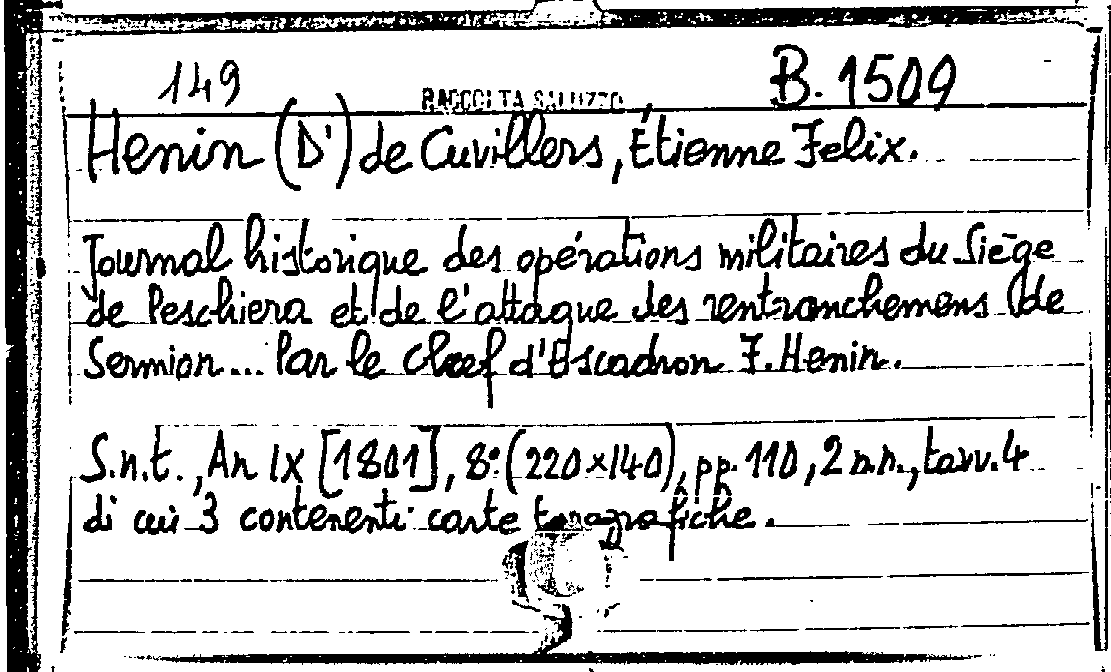 149 RACCOLTA SALUZZO B. 1509
Henin (D') de Cuvillers, Étienne Felix.
Journal historique des opérations militaires du Siège
de Peschiera et de l'attaque des rentranchemens de
Sermion... Par le chef d'Escadron F. Henin.
S.n.t., An IX [1801], 8° (220×140), pp. 110, 2 n.n., tavv. 4
di cui 3 contenenti carte topografiche.